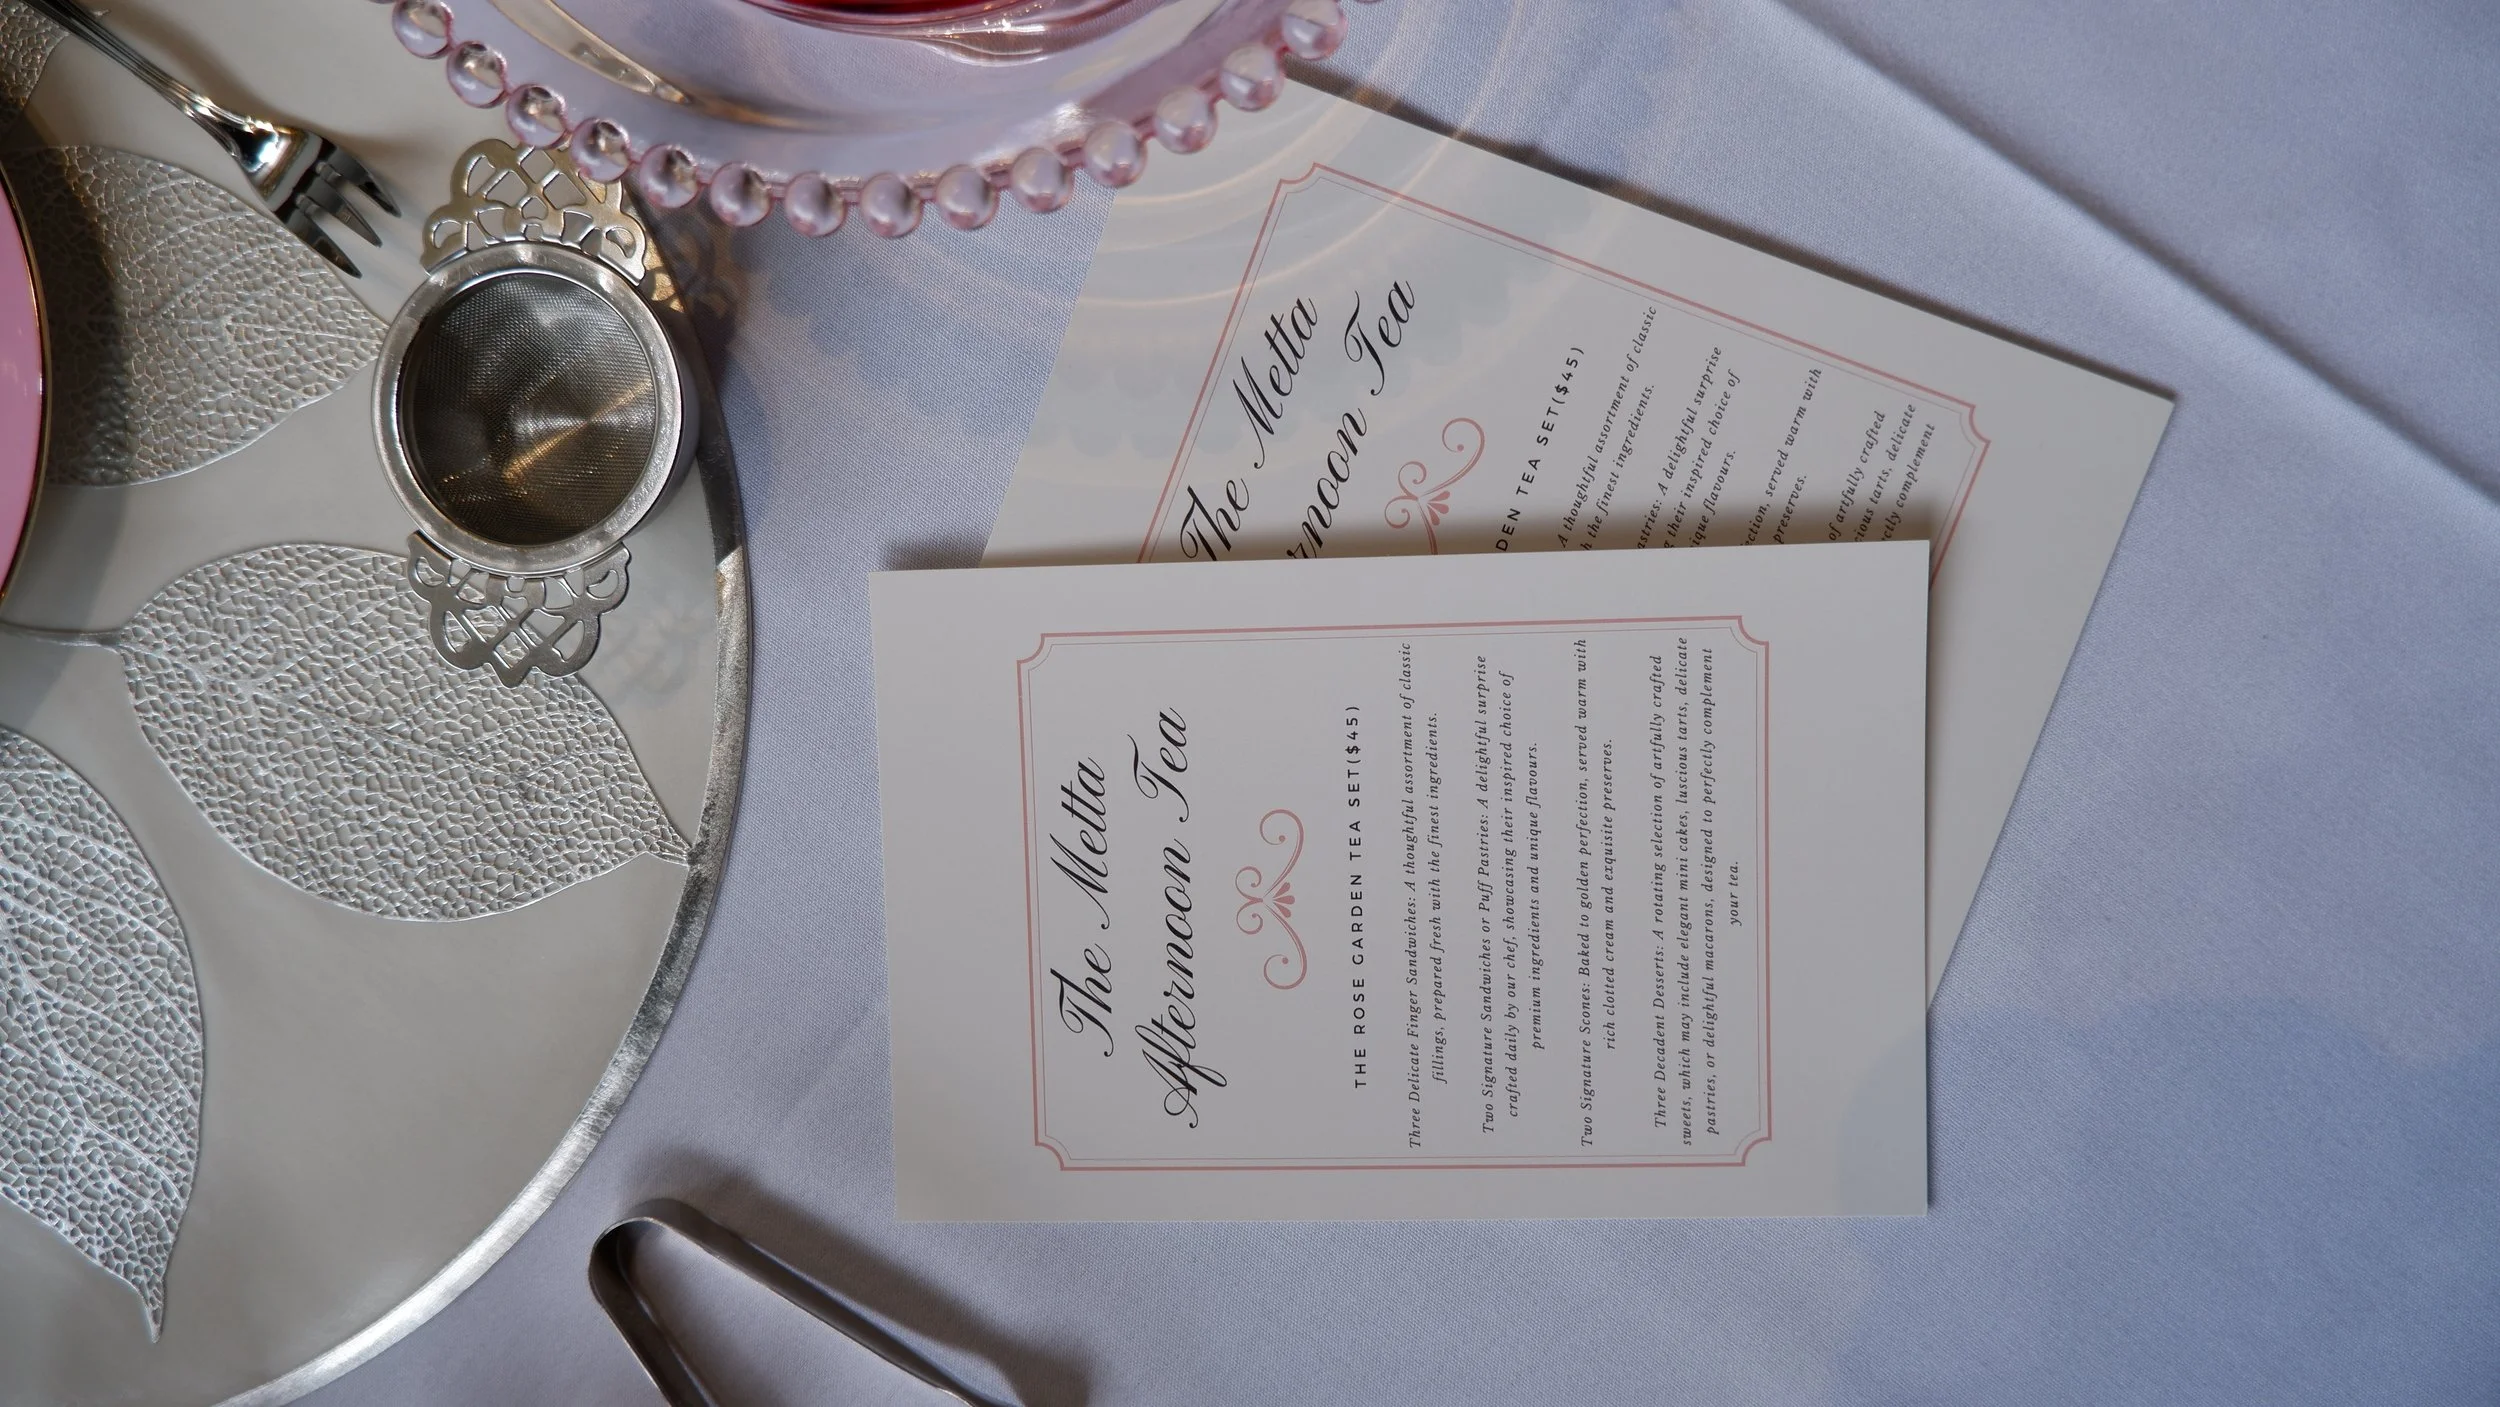 The Metta
Afternoon Tea
THE ROSE GARDEN TEA SET($45)
Three Delicate Finger Sandwiches: A thoughtful assortment of classic
fillings, prepared fresh with the finest ingredients.
Two Signature Sandwiches or Puff Pastries: A delightful surprise
crafted daily by our chef, showcasing their inspired choice of
premium ingredients and unique flavours.
Two Signature Scones: Baked to golden perfection, served warm with
rich clotted cream and exquisite preserves.
Three Decadent Desserts: A rotating selection of artfully crafted
sweets, which may include elegant mini cakes, luscious tarts, delicate
pastries, or delightful macarons, designed to perfectly complement
your tea.
The Metta
rnoon Tea
DEN TEA SET($45)
A thoughtful assortment of classic
h the finest ingredients.
astries: A delightful surprise
g their inspired choice of
ique flavours.
ection, served warm with
preserves.
of artfully crafted
cious tarts, delicate
ctly complement